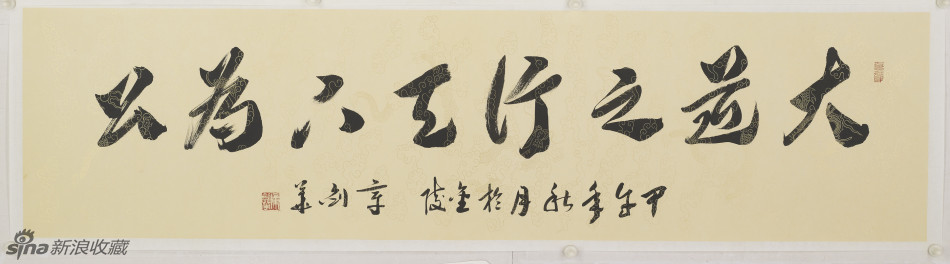 大道之行天下為公
甲午年秋月於金陵 章剑華
sina新浪收藏